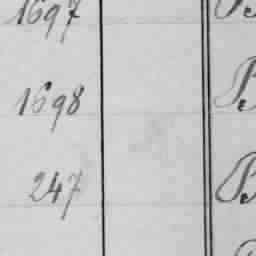 1697
1698 B.
247 B